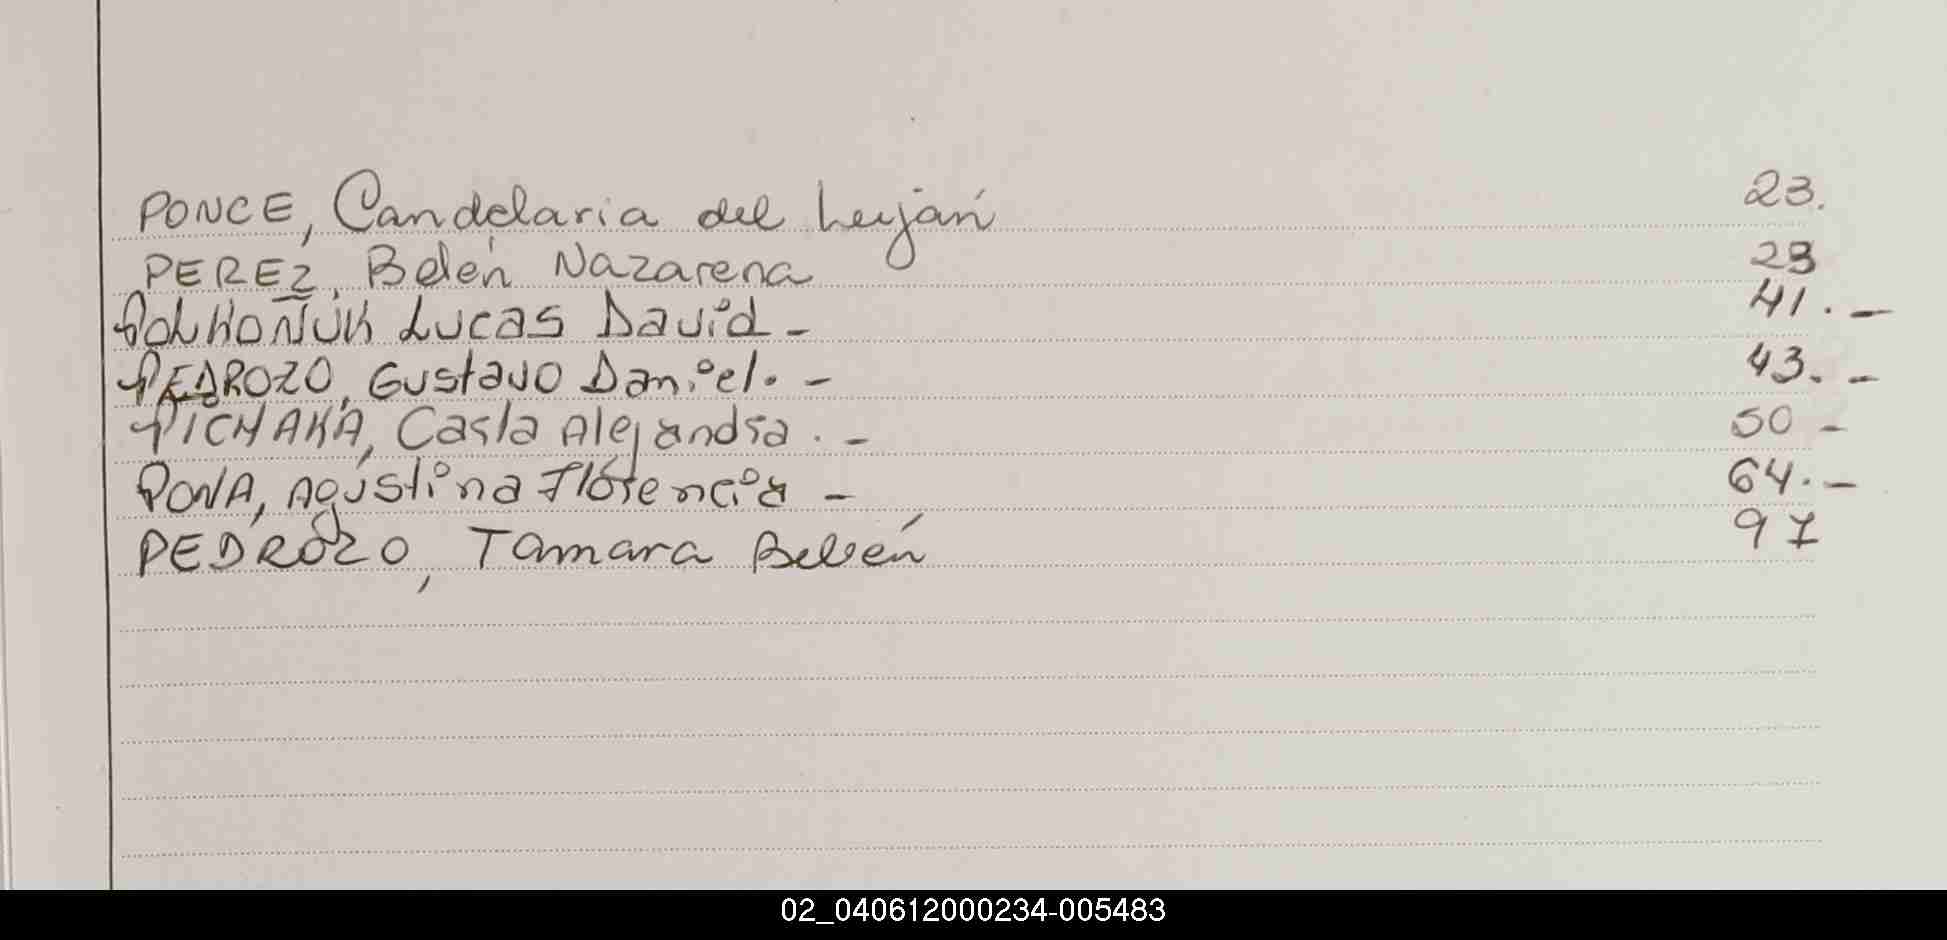 PONCE, Candelaria del Luján 23.
PEREZ, Belén Nazarena 28
POLHOÑUK Lucas David - 41. -
PEDROZO, Gustavo Daniel. - 43. -
PICHAKA, Carla Alejandra. - 50 -
PONA, Agustina Florencia - 64. -
PEDROZO, Tamara Belén 97
02_040612000234-005483